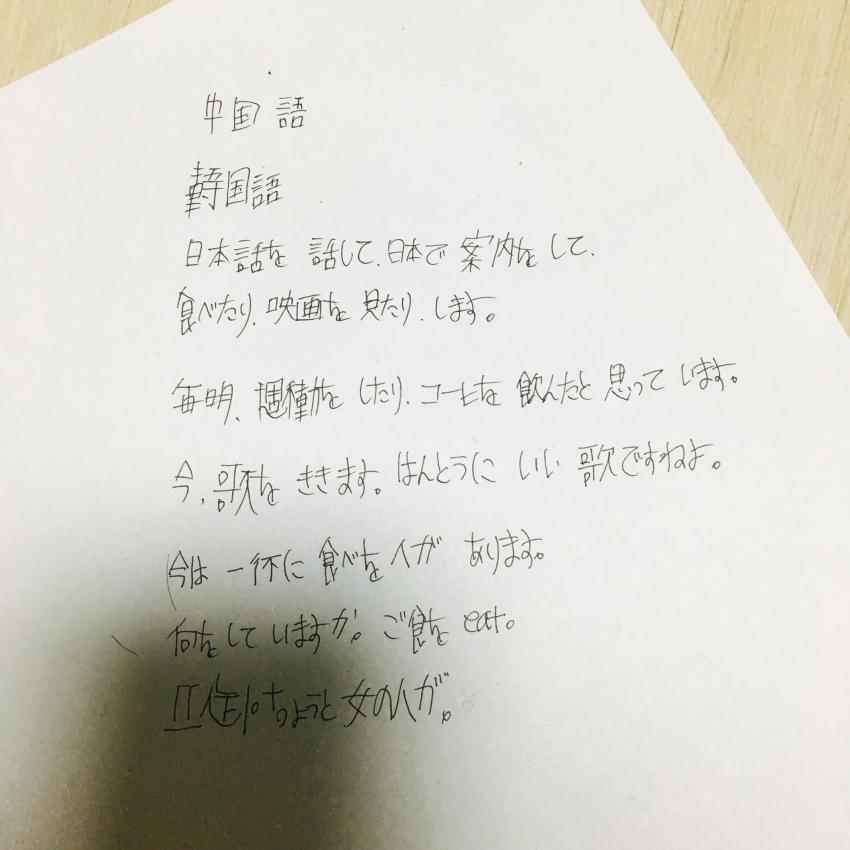 中国語
韓国語
日本話を 話して、日本で 案内を して、
食べたり、映画を 見たり、します。
毎明、運動を したり、コーヒを 飲んたと 思って います。
今、歌を ききます。はんとうに いい 歌ですねよ。
今は 一杯に 食べを 人が あります。
何を して いますか。ご飯を eat。
ちょうと 女の人が。